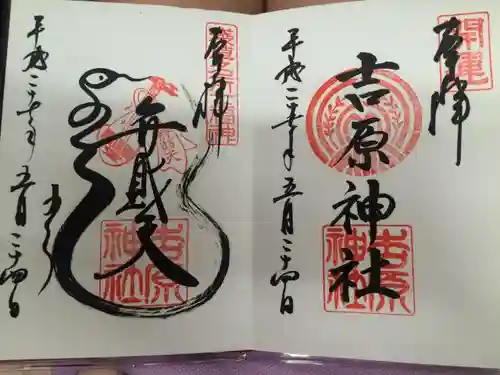 開運
奉拝
吉原神社
吉原神社
平成二十五年五月二十四日
浅草名所七福神
奉拝
弁財天
吉原神社
平成二十五年五月二十四日